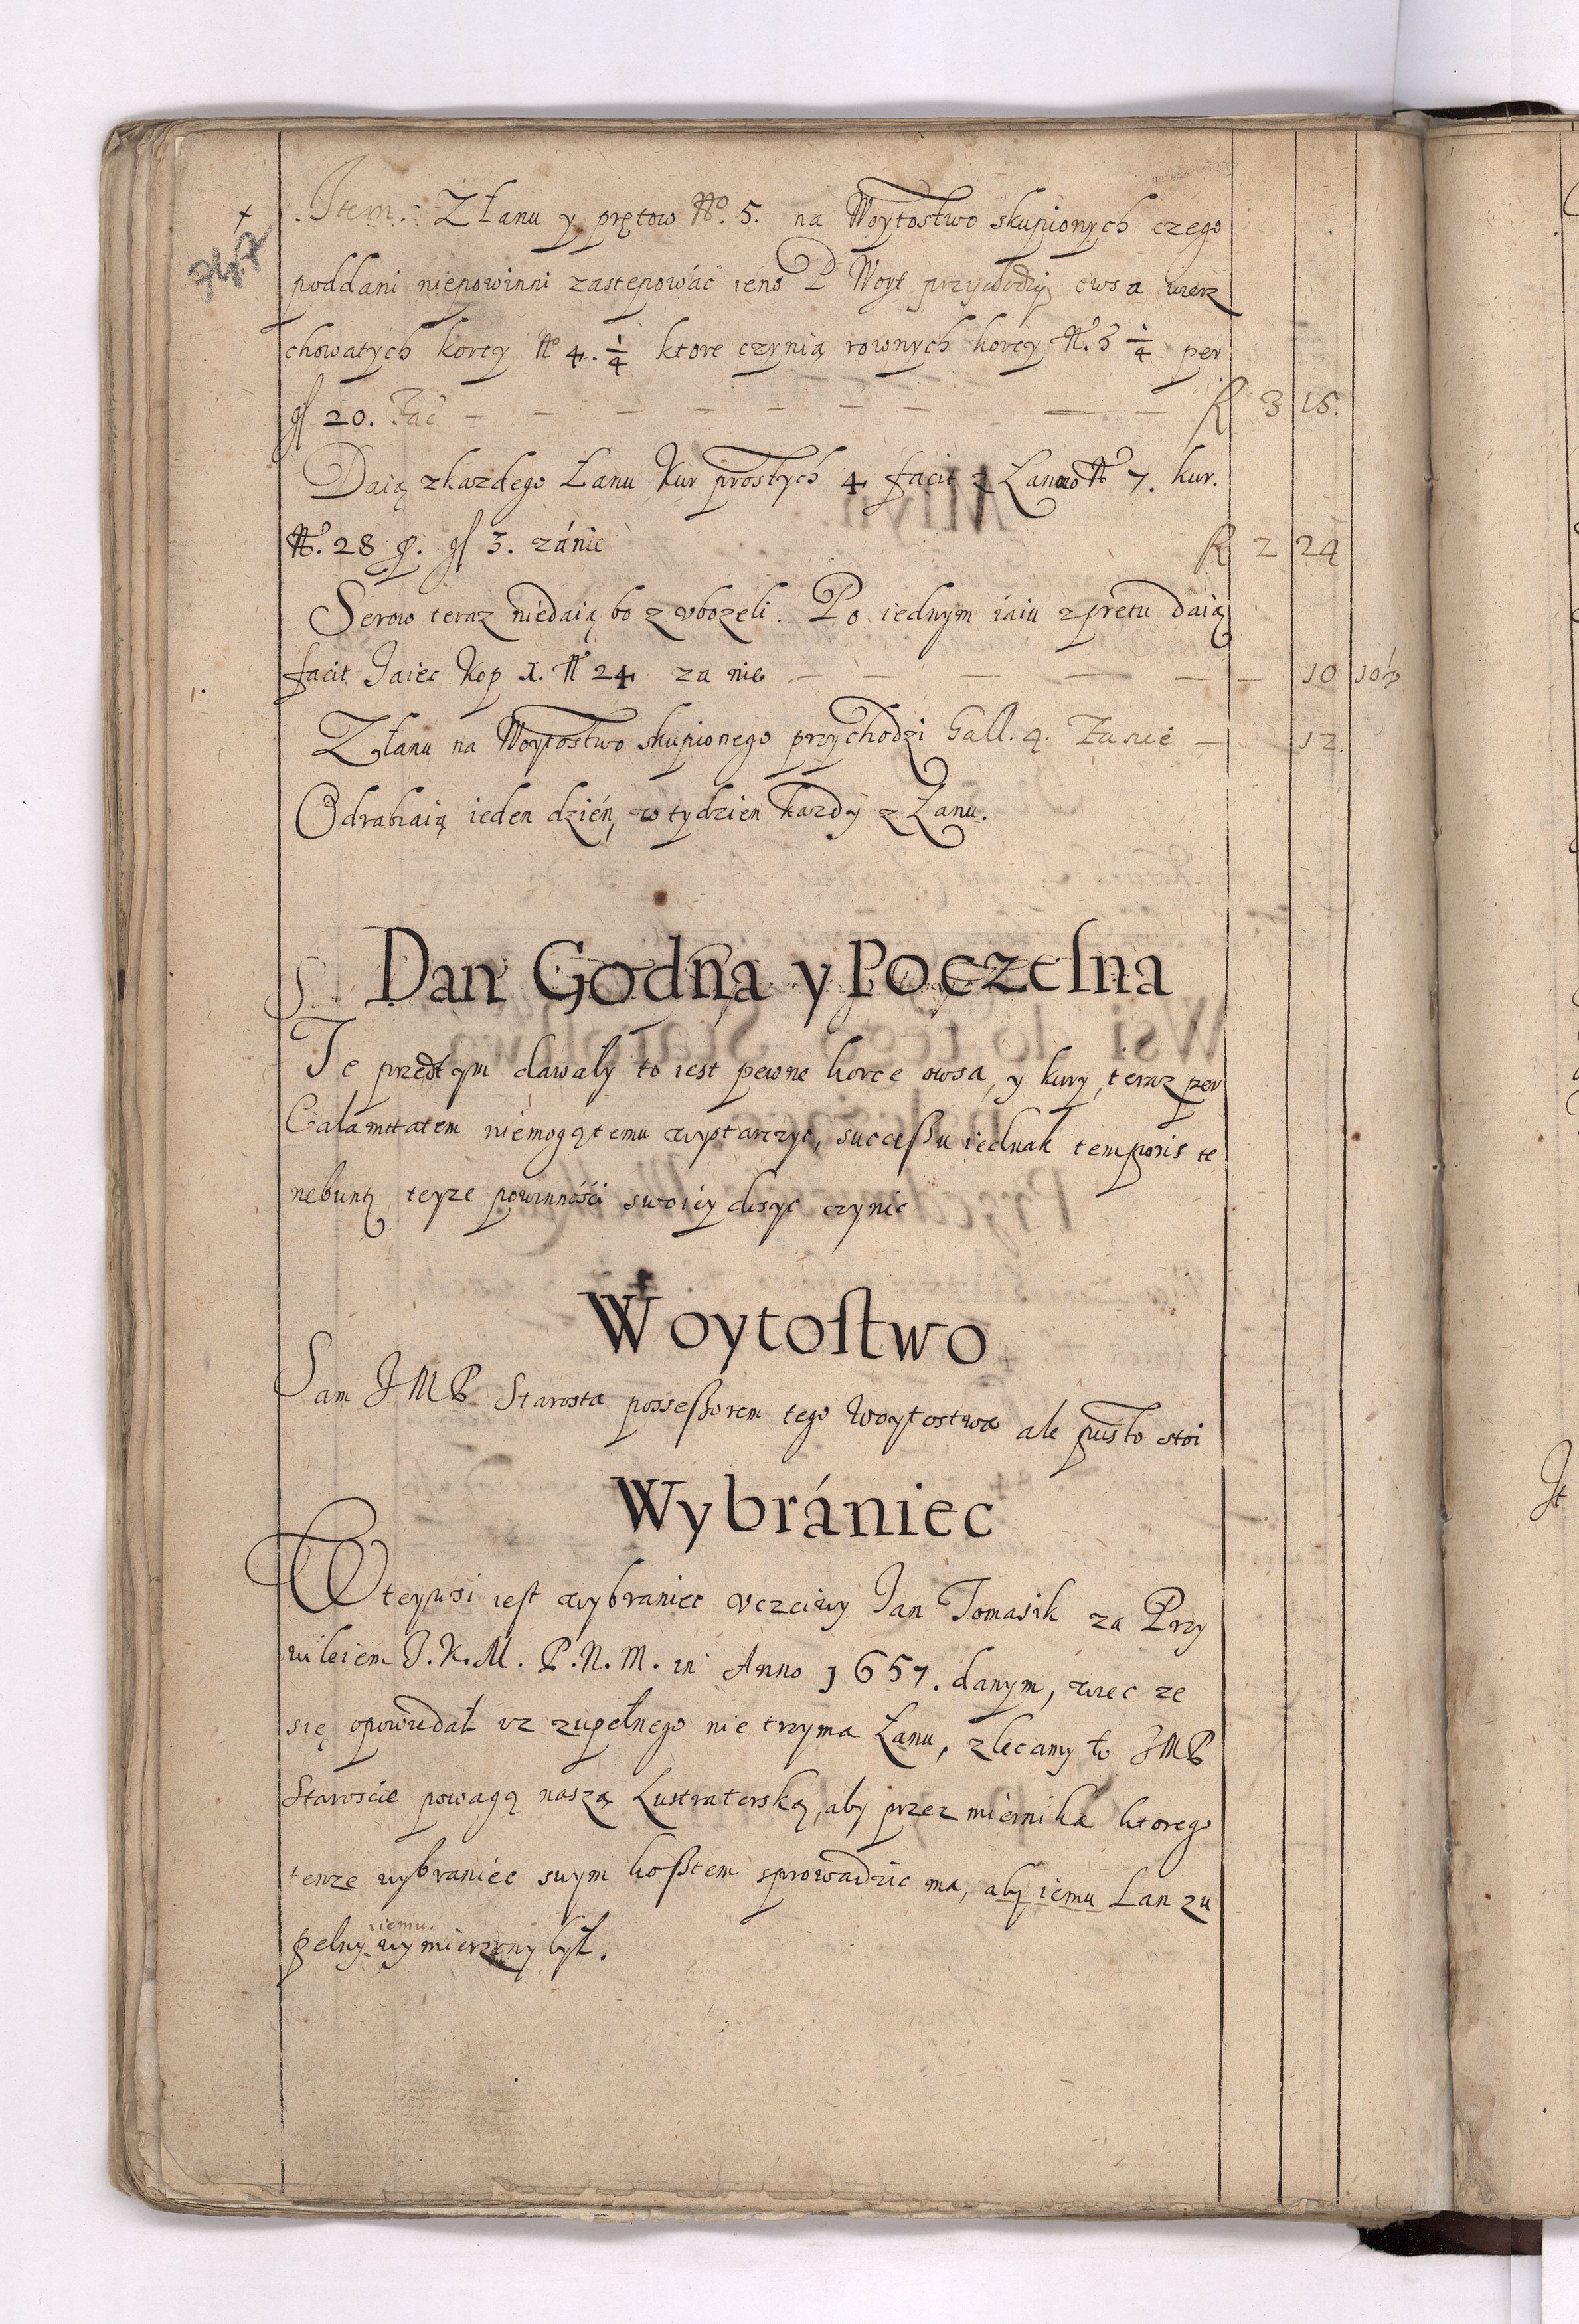 Item. Z Łanu y prętow No. 5. na Woytostwo skupionych czego
poddani niepowinni zastępowáć ieno P Woyt przychodzi owsa wierz
chowatych korcy No 4. 1/4 ktore czynią rownych korcy No. 5 1/4 per
gl 20. Fac - - - - - - - - - R 3 15.
Daią z kazdego Łanu Kur prostych 4 facit z Łanow No 7. kur.
No. 28 p. gl 3. zánie R 2 24
Serow teraz niedaią bo zvbozeli. Po iednym iaiu z prętu daią
facit Jaiec Kop 1. No 24 za nie - - - - - - 10 10½
Z Łanu na Woytostwo skupionego przychodzi Gall. 4. Za nie - 12.
Odrabiaią ieden dzień w tydzien kazdy z Łanu.
Dan Godna y Poczelna
Te przedtym dawały to iest pewne korce owsa, y kury, teraz per
Calamitatem niemogą temu wystarczyc, successu iednak temporis te
nebuntur teyze powinnośći swoiey dosyc czynic
Woytostwo
Sam JMP Starosta possessorem tego Woytostwa ale pusto stoi
Wybrániec
W teywsi iest wybraniec vczciwy Jan Tomasik za Przy
wileiem J.K.M. P.N.M. in Anno 1657. danym, więc ze
się opowiedał iz zupełnego nie trzyma Łanu, zlecamy to JMP
Staroscie powagą naszą Lustratorską, aby przez miernika ktorego
tenze wybraniec swym kosztem sprowadzic ma, aby iemu Łan zu
pełny iemu. wymierzony był.